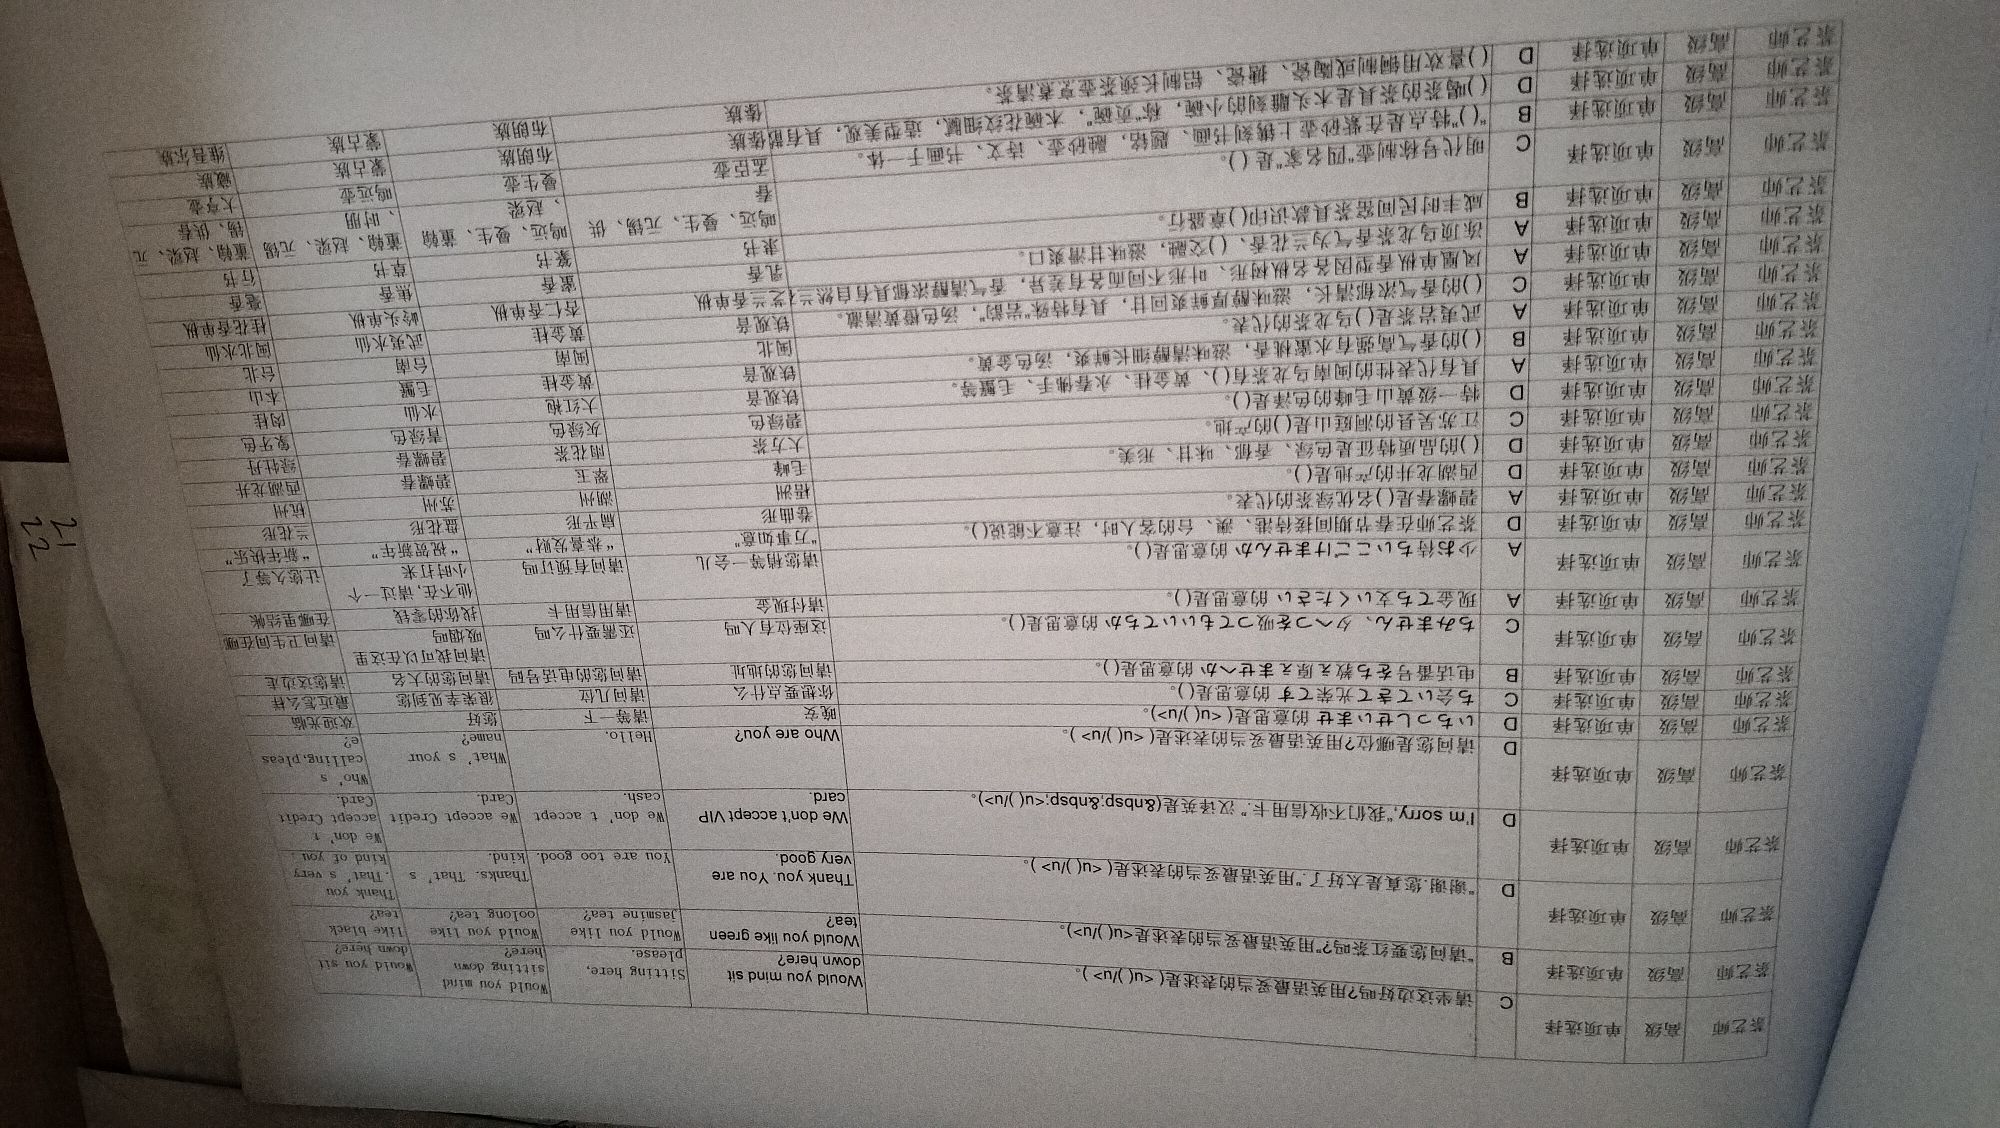 茶艺师 高级 单项选择 C 请坐这边好吗?用英语最妥当的表述是( <u( )/u> )。 Would you mind sit down here? Sitting here, please. Would you mind sitting down here? Would you sit down here?
茶艺师 高级 单项选择 B "请问您要红茶吗?"用英语最妥当的表述是<u( )/u>)。 Would you like green tea? Would you like jasmine tea? Would you like oolong tea? like black tea?
茶艺师 高级 单项选择 D "谢谢.您真是太好了."用英语最妥当的表述是( <u( )/u> )。 Thank you. You are very good. You are too good. Thanks. That's kind. Thank you .That's very kind of you.
茶艺师 高级 单项选择 D I'm sorry,"我们不收信用卡." 汉译英是(&nbsp;&nbsp;<u( )/u>)。 We don't accept VIP card. We don't accept cash. We accept Credit Card. We don't accept Credit Card.
茶艺师 高级 单项选择 D 请问您是哪位?用英语最妥当的表述是( <u( )/u> )。 Who are you? Hello. What's your name? Who's calling,please?
茶艺师 高级 单项选择 D いちつしせいませ 的意思是( <u( )/u>)。 晚安 请等一下 您好 欢迎光临
茶艺师 高级 单项选择 C ち会いてきて光荣てす 的意思是()。 你想要点什么 请问几位 很荣幸见到您 最近怎么样
茶艺师 高级 单项选择 B 电话番号をち教え原えませへか 的意思是()。 请问您的地址 请问您的电话号码 请问您的大名 请您这边走
茶艺师 高级 单项选择 C ちみません、タへつを吸つてもいいてちか 的意思是()。 这座位有人吗 还需要什么吗 请问我可以在这里吸烟吗 请问卫生间在哪
茶艺师 高级 单项选择 A 现金てち支いください 的意思是()。 请付现金 请用信用卡 找你的零钱 在哪里结帐
茶艺师 高级 单项选择 A 少お待ちいこごけませんか 的意思是()。 请您稍等一会儿 请问有预订吗 他不在,请过一个小时打来 让您久等了
茶艺师 高级 单项选择 D 茶艺师在春节期间接待港、澳、台的客人时，注意不能说()。 "万事如意" "恭喜发财" "祝贺新年" "新年快乐"
茶艺师 高级 单项选择 A 碧螺春是()名优绿茶的代表。 卷曲形 扁平形 盘花形 兰花形
茶艺师 高级 单项选择 D 西湖龙井的产地是()。 梧洲 湖州 苏州 杭州
茶艺师 高级 单项选择 D ()的品质特征是色绿、香郁、味甘、形美。 毛峰 翠玉 碧螺春 西湖龙井
茶艺师 高级 单项选择 C 江苏吴县的洞庭山是()的产地。 大方茶 阳花茶 碧螺春 绿牡丹
茶艺师 高级 单项选择 D 特一级黄山毛峰的色泽是()。 碧绿色 灰绿色 青绿色 象牙色
茶艺师 高级 单项选择 A 具有代表性的闽南乌龙茶有()、黄金桂、永春佛手、毛蟹等。 铁观音 大红袍 水仙 肉桂
茶艺师 高级 单项选择 B ()的香气高强有水蜜桃香，滋味清醇细长鲜爽，汤色金黄。 铁观音 黄金桂 毛蟹 本山
茶艺师 高级 单项选择 A 武夷岩茶是()乌龙茶的代表。 闽北 闽南 台南 台北
茶艺师 高级 单项选择 C ()的香气浓郁清长，滋味醇厚鲜爽回甘，具有特殊"岩韵"，汤色橙黄清澈。 铁观音 黄金桂 武夷水仙 闽北水仙
茶艺师 高级 单项选择 A 凤凰单枞香型因各名枞树形、叶形不同而各有差异，香气清醇浓郁具有自然兰花 芝兰香单枞 杏仁香单枞 岭头单枞 桂花香单枞
茶艺师 高级 单项选择 A 冻顶乌龙茶香气为兰花香、()交融，滋味甘滑爽口。 乳香 蜜香 焦香 毫香
茶艺师 高级 单项选择 B 咸丰时民间窑茶具款识印()章盛行。 隶书 篆书 草书 行书
茶艺师 高级 单项选择 C 明代号称制壶"四名家"是()。 鸣远、曼生、元锡、供春 鸣远、曼生、董翰、赵梁 董翰、赵梁、元锡、时朋 董翰、赵梁、元锡、供春
茶艺师 高级 单项选择 B "()"特点是在紫砂壶上镌刻书画、题铭，融砂壶、诗文、书画于一体。 孟臣壶 曼生壶 鸣远壶 大亨壶
茶艺师 高级 单项选择 D ()喝茶的茶具是木头雕刻的小碗，称"贡碗"，木碗花纹细腻，造型美观，具有 傣族 布朗族 蒙古族 藏族
茶艺师 高级 单项选择 D ()喜欢用铜制或陶瓷、搪瓷、铝制长颈茶壶烹煮清茶。 傣族 布朗族 蒙古族 维吾尔族
21
22